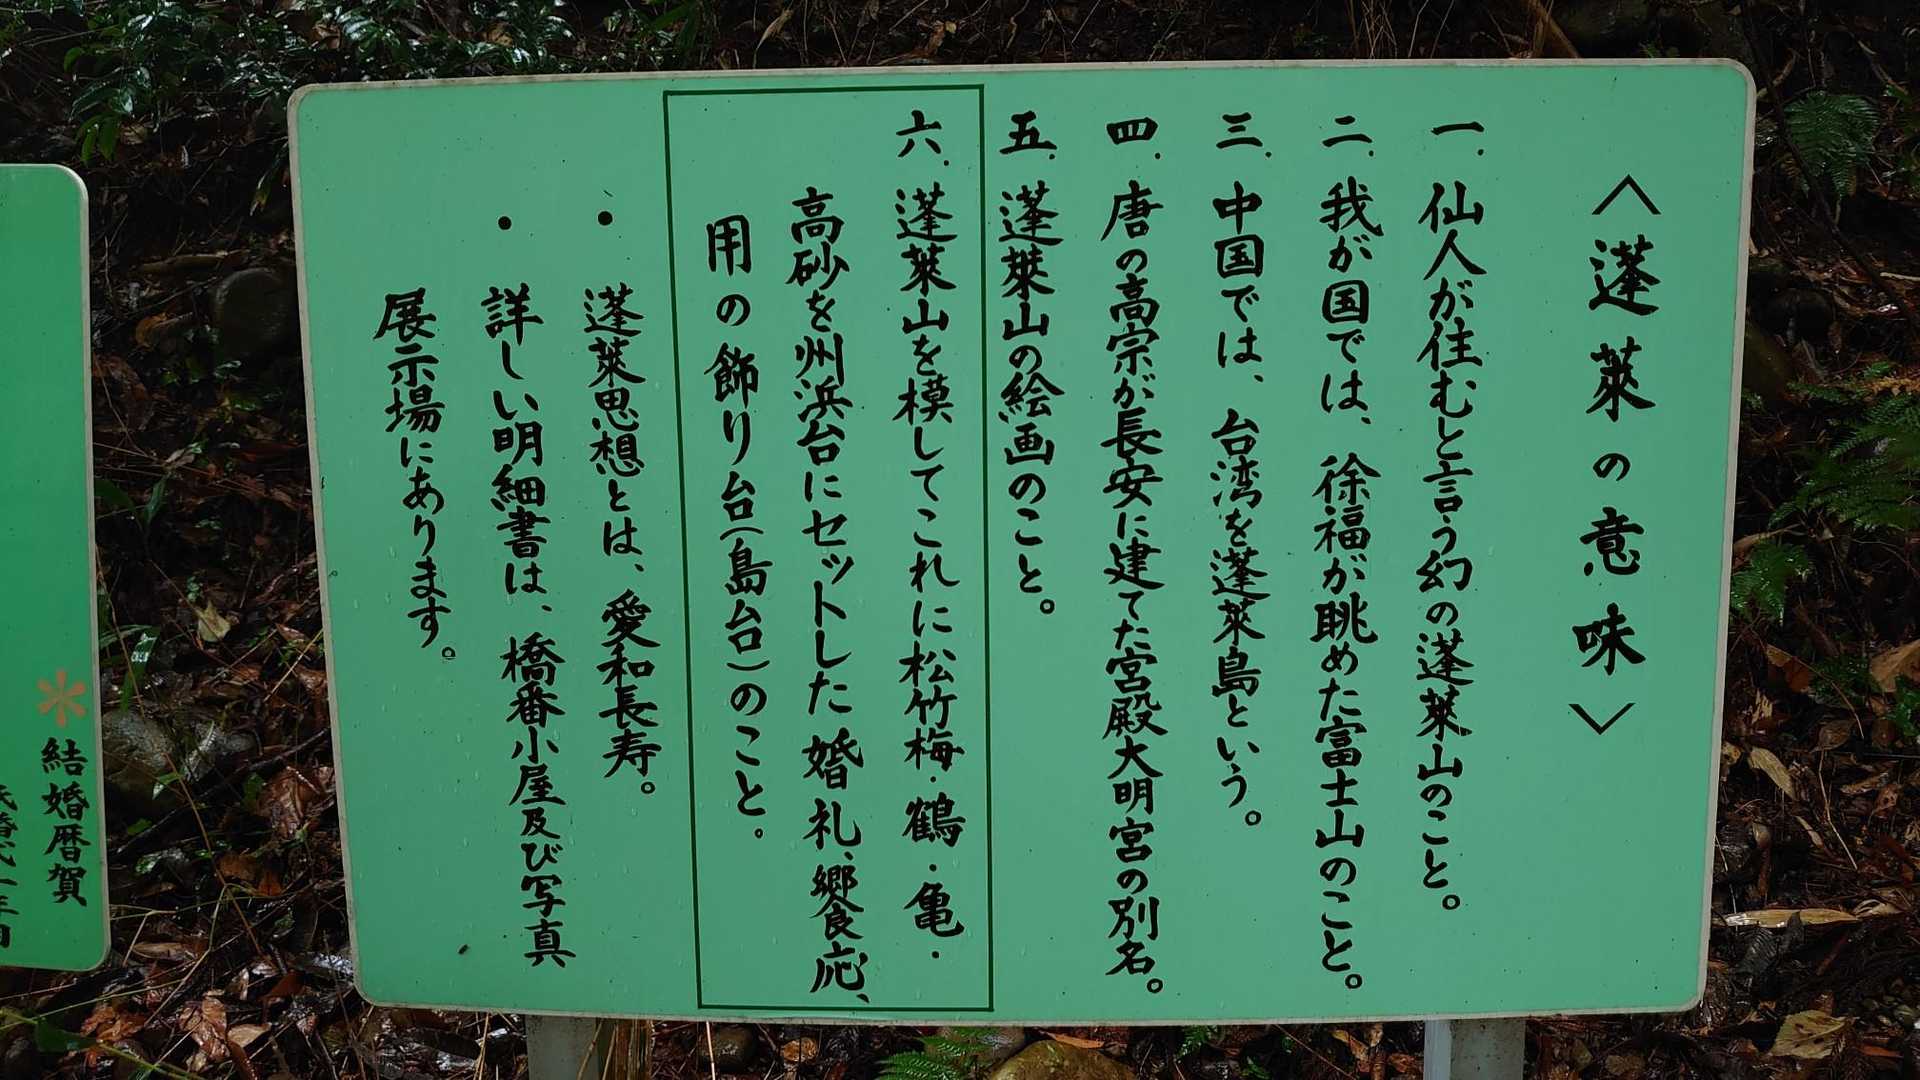 〈蓬莱の意味〉
一.仙人が住むと言う幻の蓬莱山のこと。
二.我が国では、徐福が眺めた富士山のこと。
三.中国では、台湾を蓬莱島という。
四.唐の高宗が長安に建てた宮殿大明宮の別名。
五.蓬莱山の絵画のこと。
六.蓬莱山を模してこれに松竹梅・鶴・亀・
高砂を州浜台にセットした婚礼、饗応、
用の飾り台(島台)のこと。
・蓬莱思想とは、愛和長寿。
・詳しい明細書は、橋番小屋及び写真
展示場にあります。
結婚暦賀